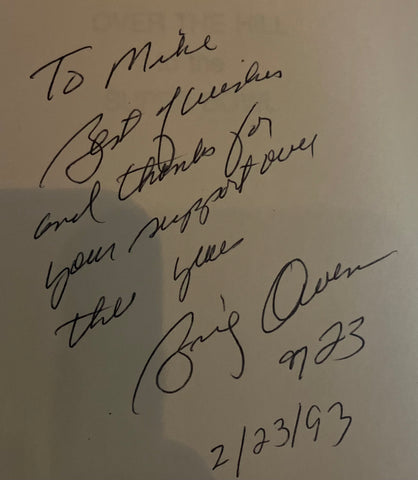 OVER THE HILL
to the
To Mike
Best of wishes
and thanks for
your support over
the years
Brig Owens
23
2/23/93